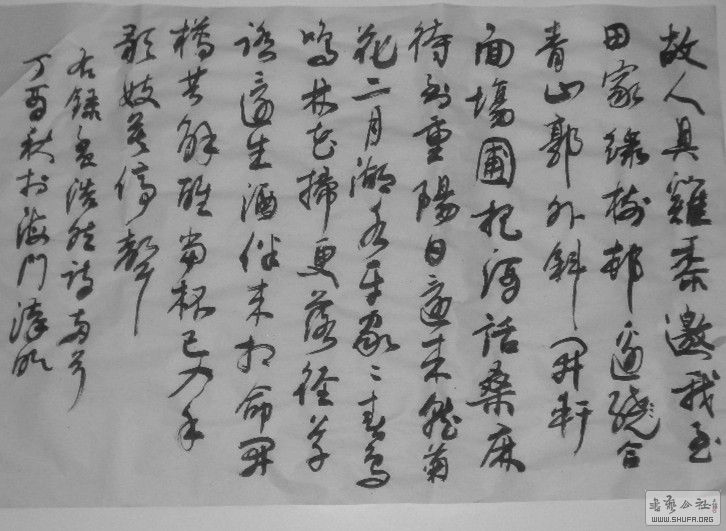 故人具雞黍邀我至
田家綠樹邨邊繞合
青山郭外斜開軒
面場圃把酒話桑麻
待到重陽日還來就菊
花二月湖水平家〻春鳥
鳴林花掃更落徑草
踏還生酒伴來相命開
樽共解酲當杯已入手
歌妓莫停聲
右録孟浩然詩两首
丁酉秋於海門
書藝公社
WWW.SHUFA.ORG